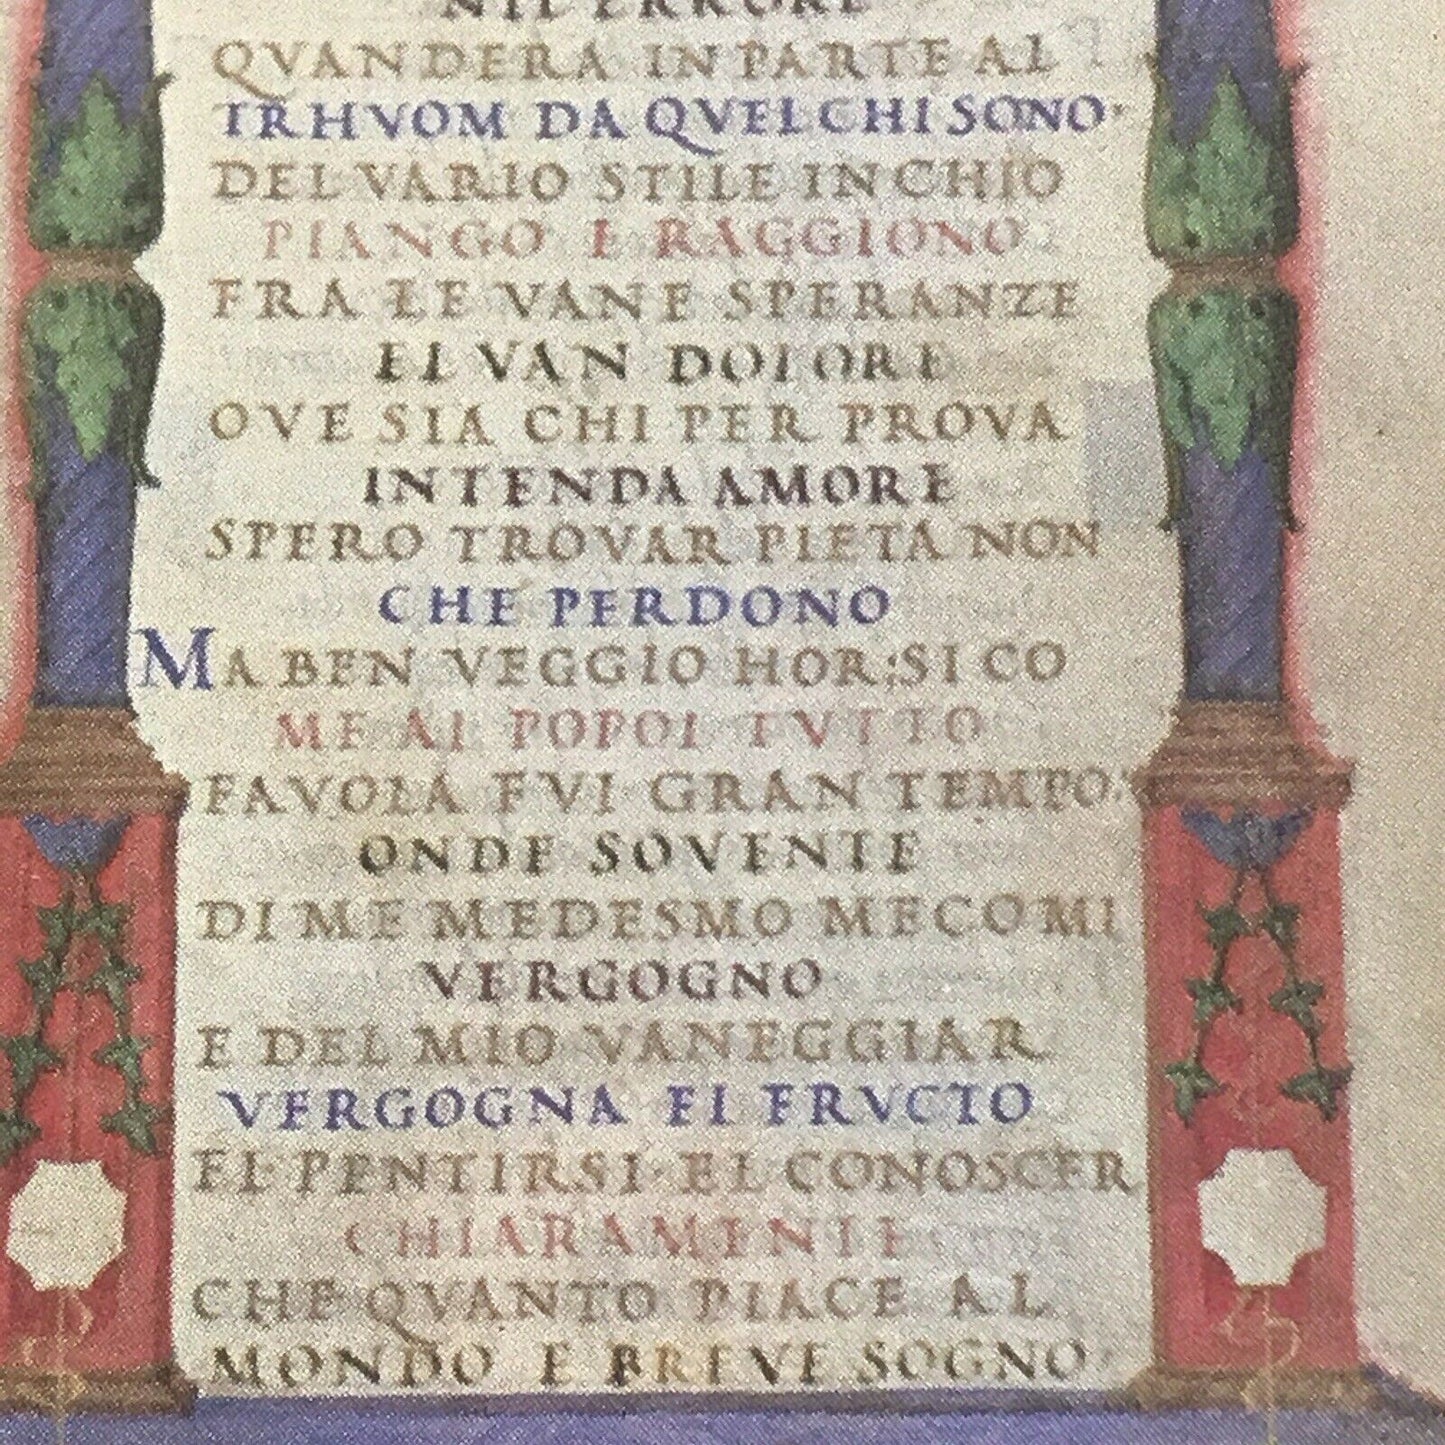 NIL ERRORE
QVANDERA IN PARTE AL
TRHVOM DA QVEL CHI SONO
DEL VARIO STILE IN CHIO
PIANGO E RAGGIONO
FRA LE VANE SPERANZE
EL VAN DOLORE
OVE SIA CHI PER PROVA
INTENDA AMORE
SPERO TROVAR PIETA NON
CHE PERDONO
MA BEN VEGGIO HOR: SI CO
ME AL POPOL TVTTO
FAVOLA FVI GRAN TEMPO:
ONDE SOVENTE
DI ME MEDESMO MECO MI
VERGOGNO
E DEL MIO VANEGGIAR
VERGOGNA EL FRVCTO
EL PENTIRSI EL CONOSCER
CHIARAMENTE
CHE QVANTO PIACE AL
MONDO E BREVE SOGNO